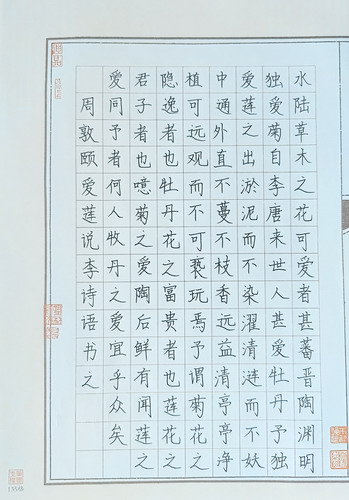 水陆草木之花可爱者甚蕃晋陶渊明
独爱菊自李唐来世人甚爱牡丹予独
爱莲之出淤泥而不染濯清涟而不妖
中通外直不蔓不枝香远益清亭亭净
植可远观而不可亵玩焉予谓菊花之
隐逸者也牡丹花之富贵者也莲花之
君子者也噫菊之爱陶后鲜有闻莲之
爱同予者何人牧丹之爱宜乎众矣
周敦颐爱莲说李诗语书之